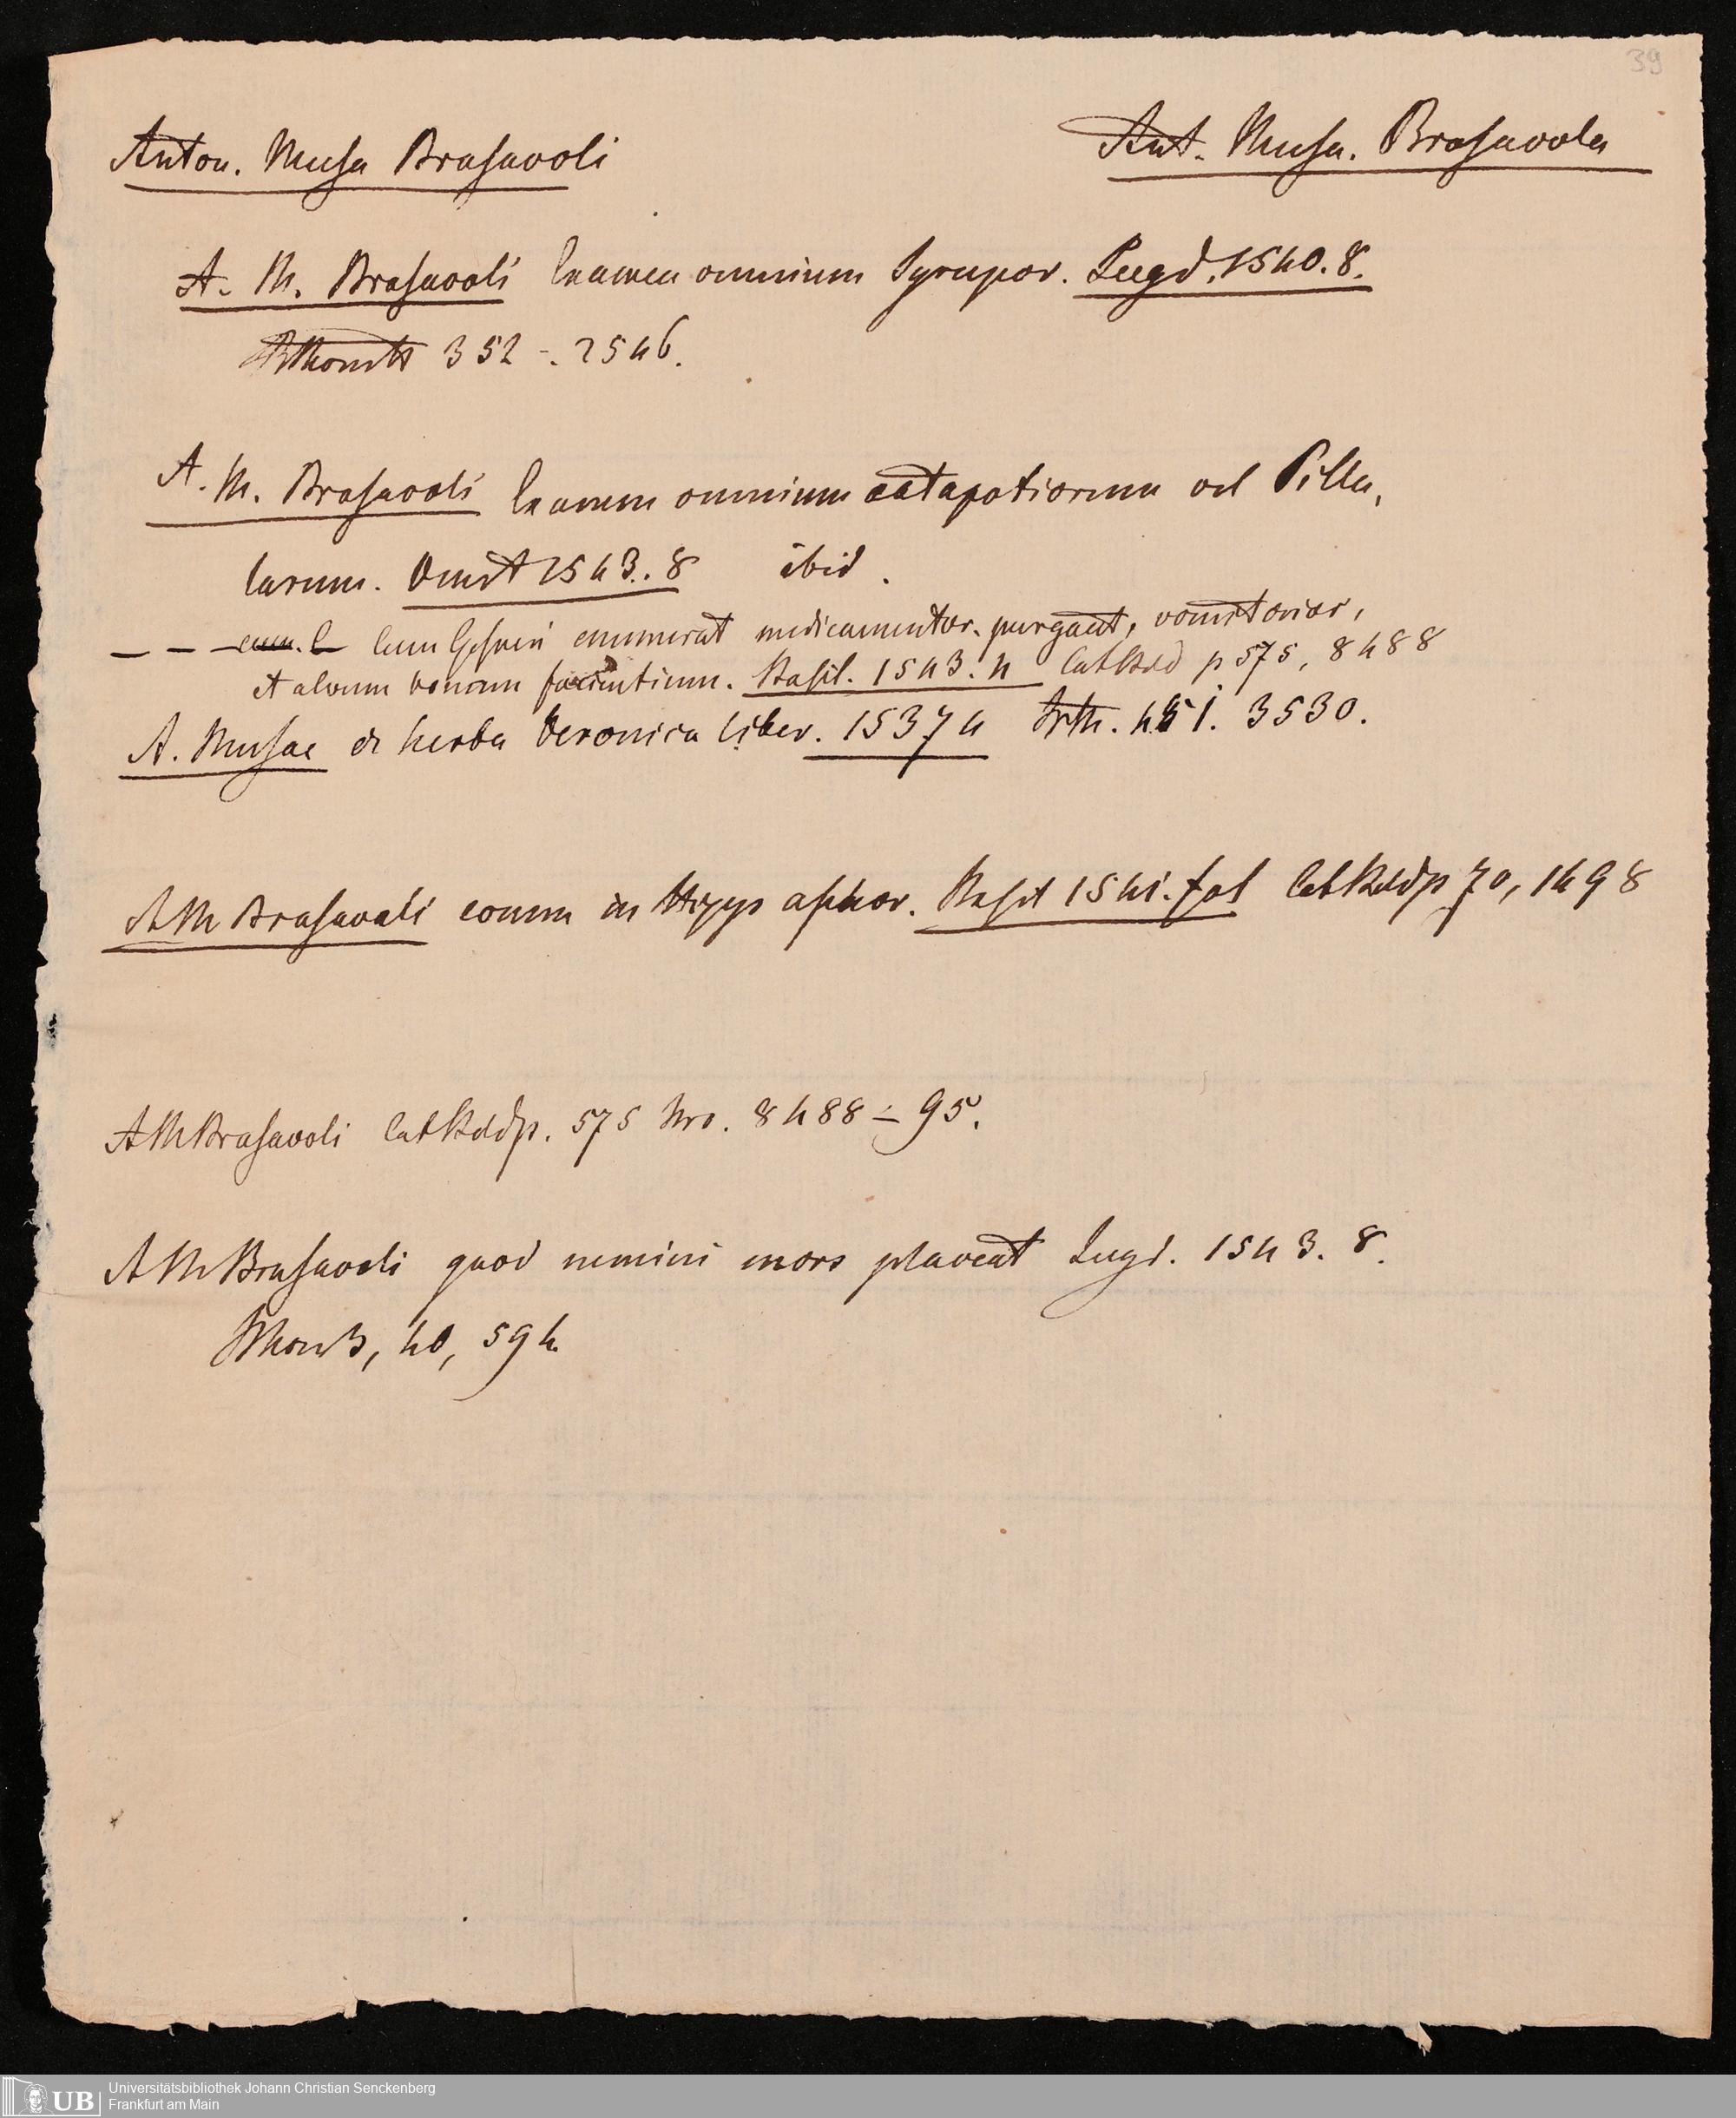 39
Anton. Musa Brasavoli
Ant. Musa. Brasavola
A. M. Brasavoli Examen omnium Syrupor. Lugd. 1540. 8.
352 -. 2546.
A. M. Brasavoli Examen omnium catapotiorum vel Pillu,
larum. 1543. 8 ibid.
_ _ _ Cum Gesneri enumerat medicamentor. purgant, vomitorior,
et alvum bonam facientium. Basil. 1543. 4 CatBdd p 575, 8488
A. Musae de herba Veronica liber. 1537 4 451. 3530.
AM Brasavoli comm in Hipp aphor. Basil 1541. fol CatBddp 70, 1498
AMBrasavoli CatBddp. 575 Nro. 8488 - 95.
AMBrasavoli quod nemini mors placeat Lugd. 1543. 8.
40, 594.
UB
Universitätsbibliothek Johann Christian Senckenberg
Frankfurt am Main